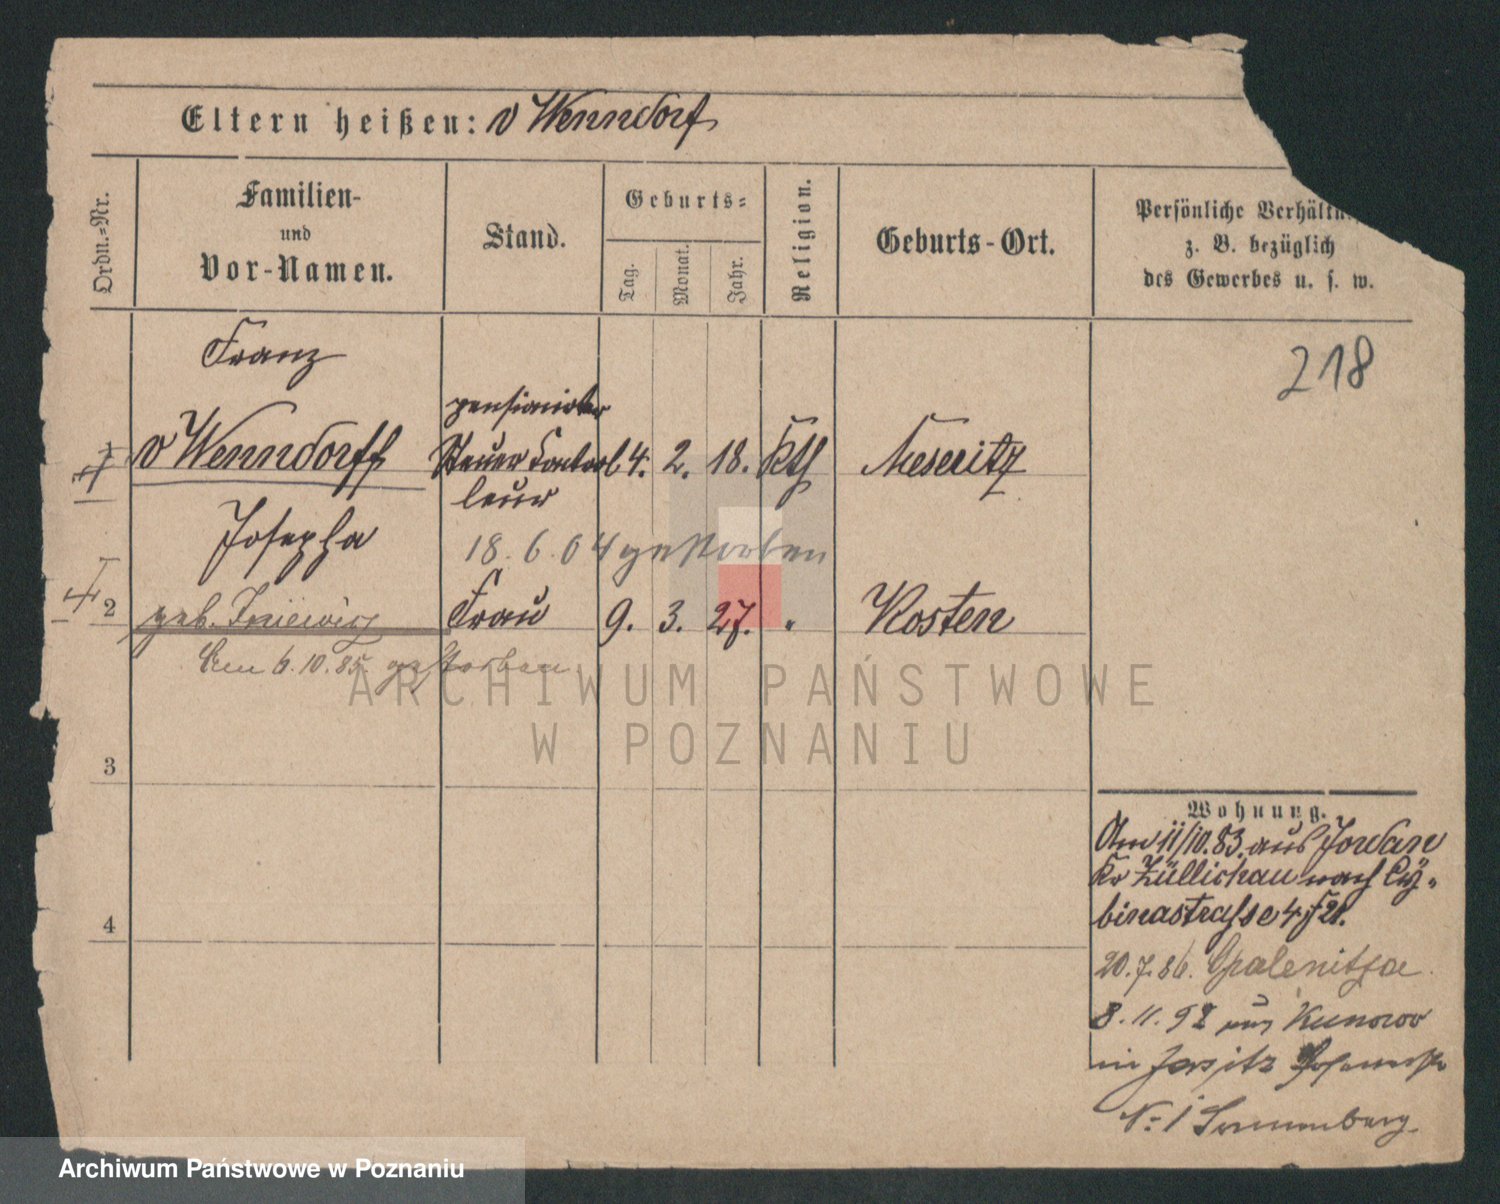 Eltern heißen: v Wenndorf
Ordn.=Nr.
Familien-
und
Vor-Namen.
Stand.
Geburts=
Tag.
Monat.
Jahr.
Religion.
Geburts-Ort.
Persönliche Verhältn
z. B. bezüglich
des Gewerbes u. s. w.
218
Franz
pensionirter
1 v Wenndorff Steuer Control 4. 2. 18. Kth Meseritz
leur
Josepha
18. 6. 04 gestorben
2 geb. Frau 9. 3. 27. " Kosten
Am 6.10.85. gestorben
ARCHIWUM PAŃSTWOWE
W POZNANIU
3
4
Wohnung.
Am 11/10.83. aus Jordan
Kr Züllichau nach Cy-
binastrasse 4
20.7.86. Opalenitza
8.11.92 aus Kunowo
in Jersitz
No 1 Sonnenberg
Archiwum Państwowe w Poznaniu